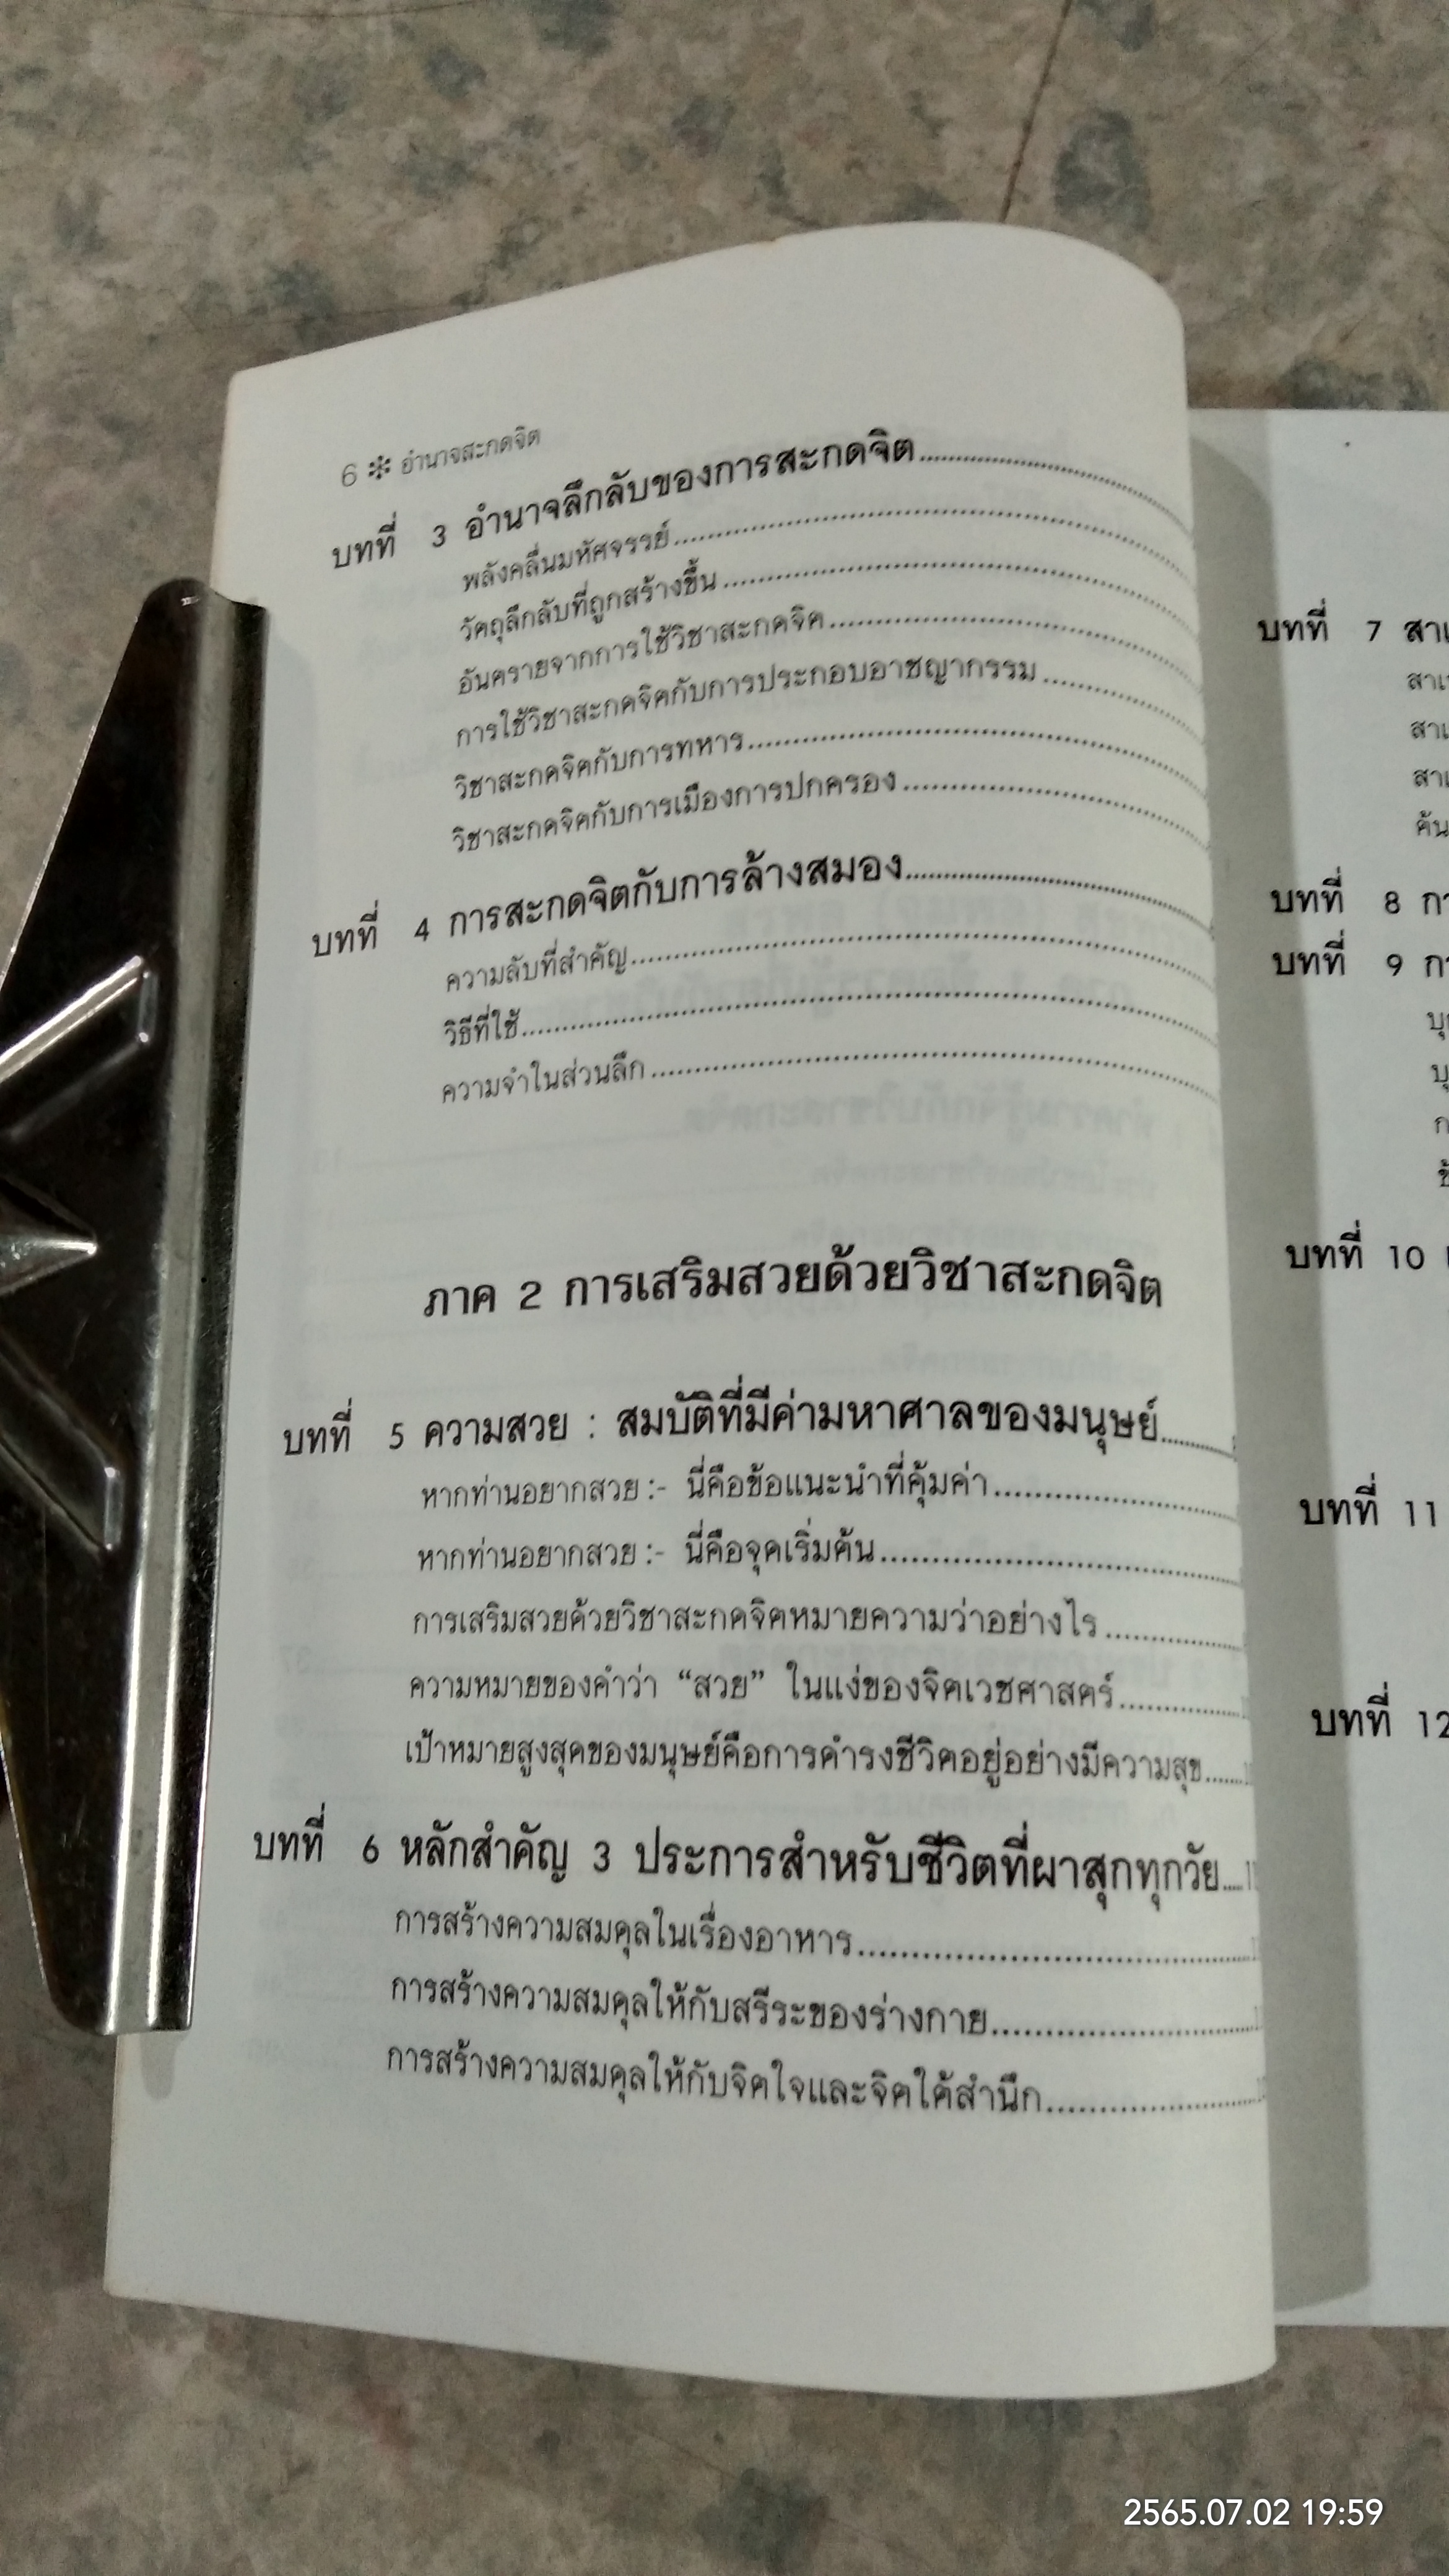 6 ✻ อำนาจสะกดจิต
บทที่ 3 อำนาจลึกลับของการสะกดจิต
พลังคลื่นมหัศจรรย์
วัตถุลึกลับที่ถูกสร้างขึ้น
อันตรายจากการใช้วิชาสะกดจิต
การใช้วิชาสะกดจิตกับการประกอบอาชญากรรม
วิชาสะกดจิตกับการทหาร
วิชาสะกดจิตกับการเมืองการปกครอง
บทที่ 4 การสะกดจิตกับการล้างสมอง
ความลับที่สำคัญ
วิธีที่ใช้
ความจำในส่วนลึก
ภาค 2 การเสริมสวยด้วยวิชาสะกดจิต
บทที่ 5 ความสวย : สมบัติที่มีค่ามหาศาลของมนุษย์
หากท่านอยากสวย :- นี่คือข้อแนะนำที่คุ้มค่า
หากท่านอยากสวย :- นี่คือจุดเริ่มต้น
การเสริมสวยด้วยวิชาสะกดจิตหมายความว่าอย่างไร
ความหมายของคำว่า “สวย” ในแง่ของจิตเวชศาสตร์
เป้าหมายสูงสุดของมนุษย์คือการดำรงชีวิตอยู่อย่างมีความสุข
บทที่ 6 หลักสำคัญ 3 ประการสำหรับชีวิตที่ผาสุกทุกวัย
การสร้างความสมดุลในเรื่องอาหาร
การสร้างความสมดุลให้กับสรีระของร่างกาย
การสร้างความสมดุลให้กับจิตใจและจิตใต้สำนึก
บทที่ 7
บทที่ 8
บทที่ 9
บทที่ 10
บทที่ 11
บทที่ 12
2565.07.02 19:59